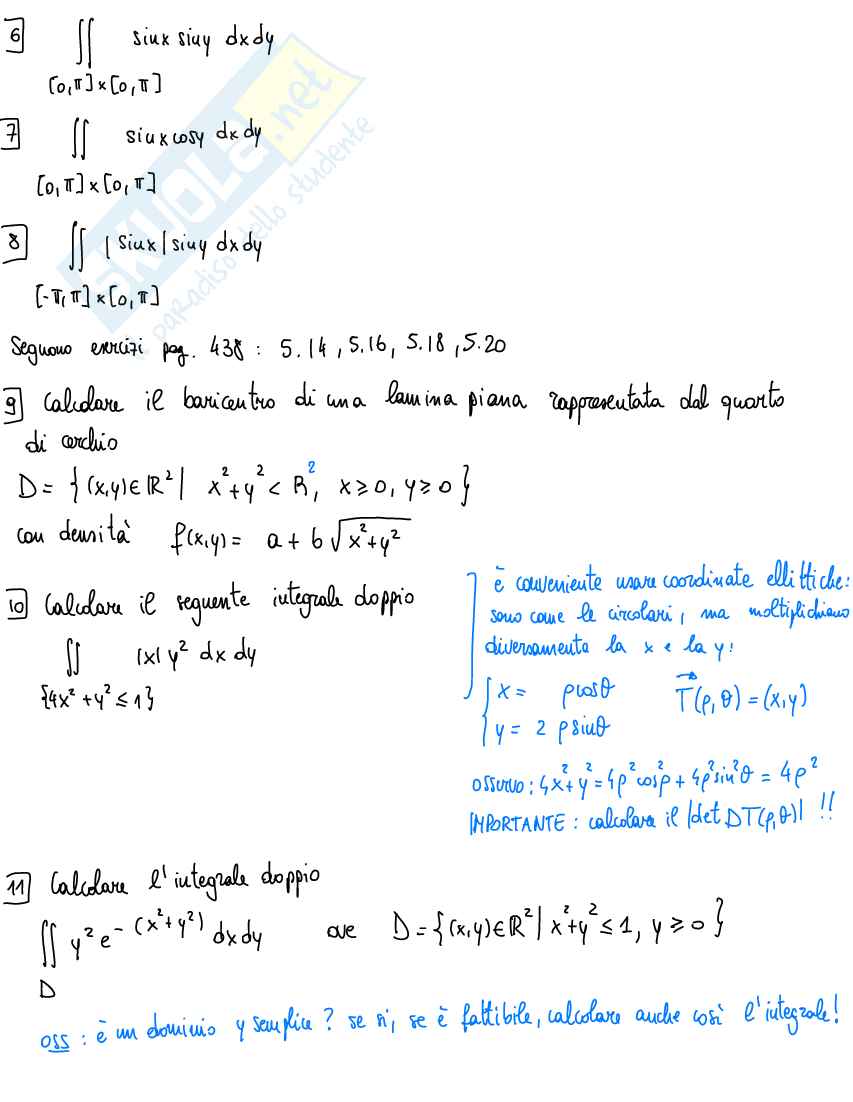 6 ∬ sinx siny dxdy
[0,π]×[0,π]
7 ∬ sinxcosy dxdy
[0,π]×[0,π]
8 ∬ |sinx|siny dxdy
[-π,π]×[0,π]
SKUOLA.net
il paradiso dello studente
Seguono esercizi pag. 438 : 5.14, 5.16, 5.18, 5.20
9 Calcolare il baricentro di una lamina piana rappresentata dal quarto
di cerchio
D = {(x,y)∈ℝ² | x²+y² < R², x≥0, y≥0}
con densità f(x,y) = a + b√(x²+y²)
10 Calcolare il seguente integrale doppio
∬ |x| y² dx dy
{4x²+y² ≤ 1}
è conveniente usare coordinate ellittiche:
sono come le circolari, ma moltiplichiamo
diversamente la x e la y:
{ x = ρcosθ T⃗(ρ,θ) = (x,y)
y = 2 ρsinθ
osservo: 4x²+y² = 4ρ²cos²ρ + 4ρ²sin²θ = 4ρ²
IMPORTANTE : calcolare il |det DT(ρ,θ)| !!
11 Calcolare l'integrale doppio
∬ y² e^-(x²+y²) dxdy ove D = {(x,y)∈ℝ² | x²+y² ≤ 1, y ≥ 0}
D
oss : è un dominio y semplice ? se sì, se è fattibile, calcolare anche così l'integrale!